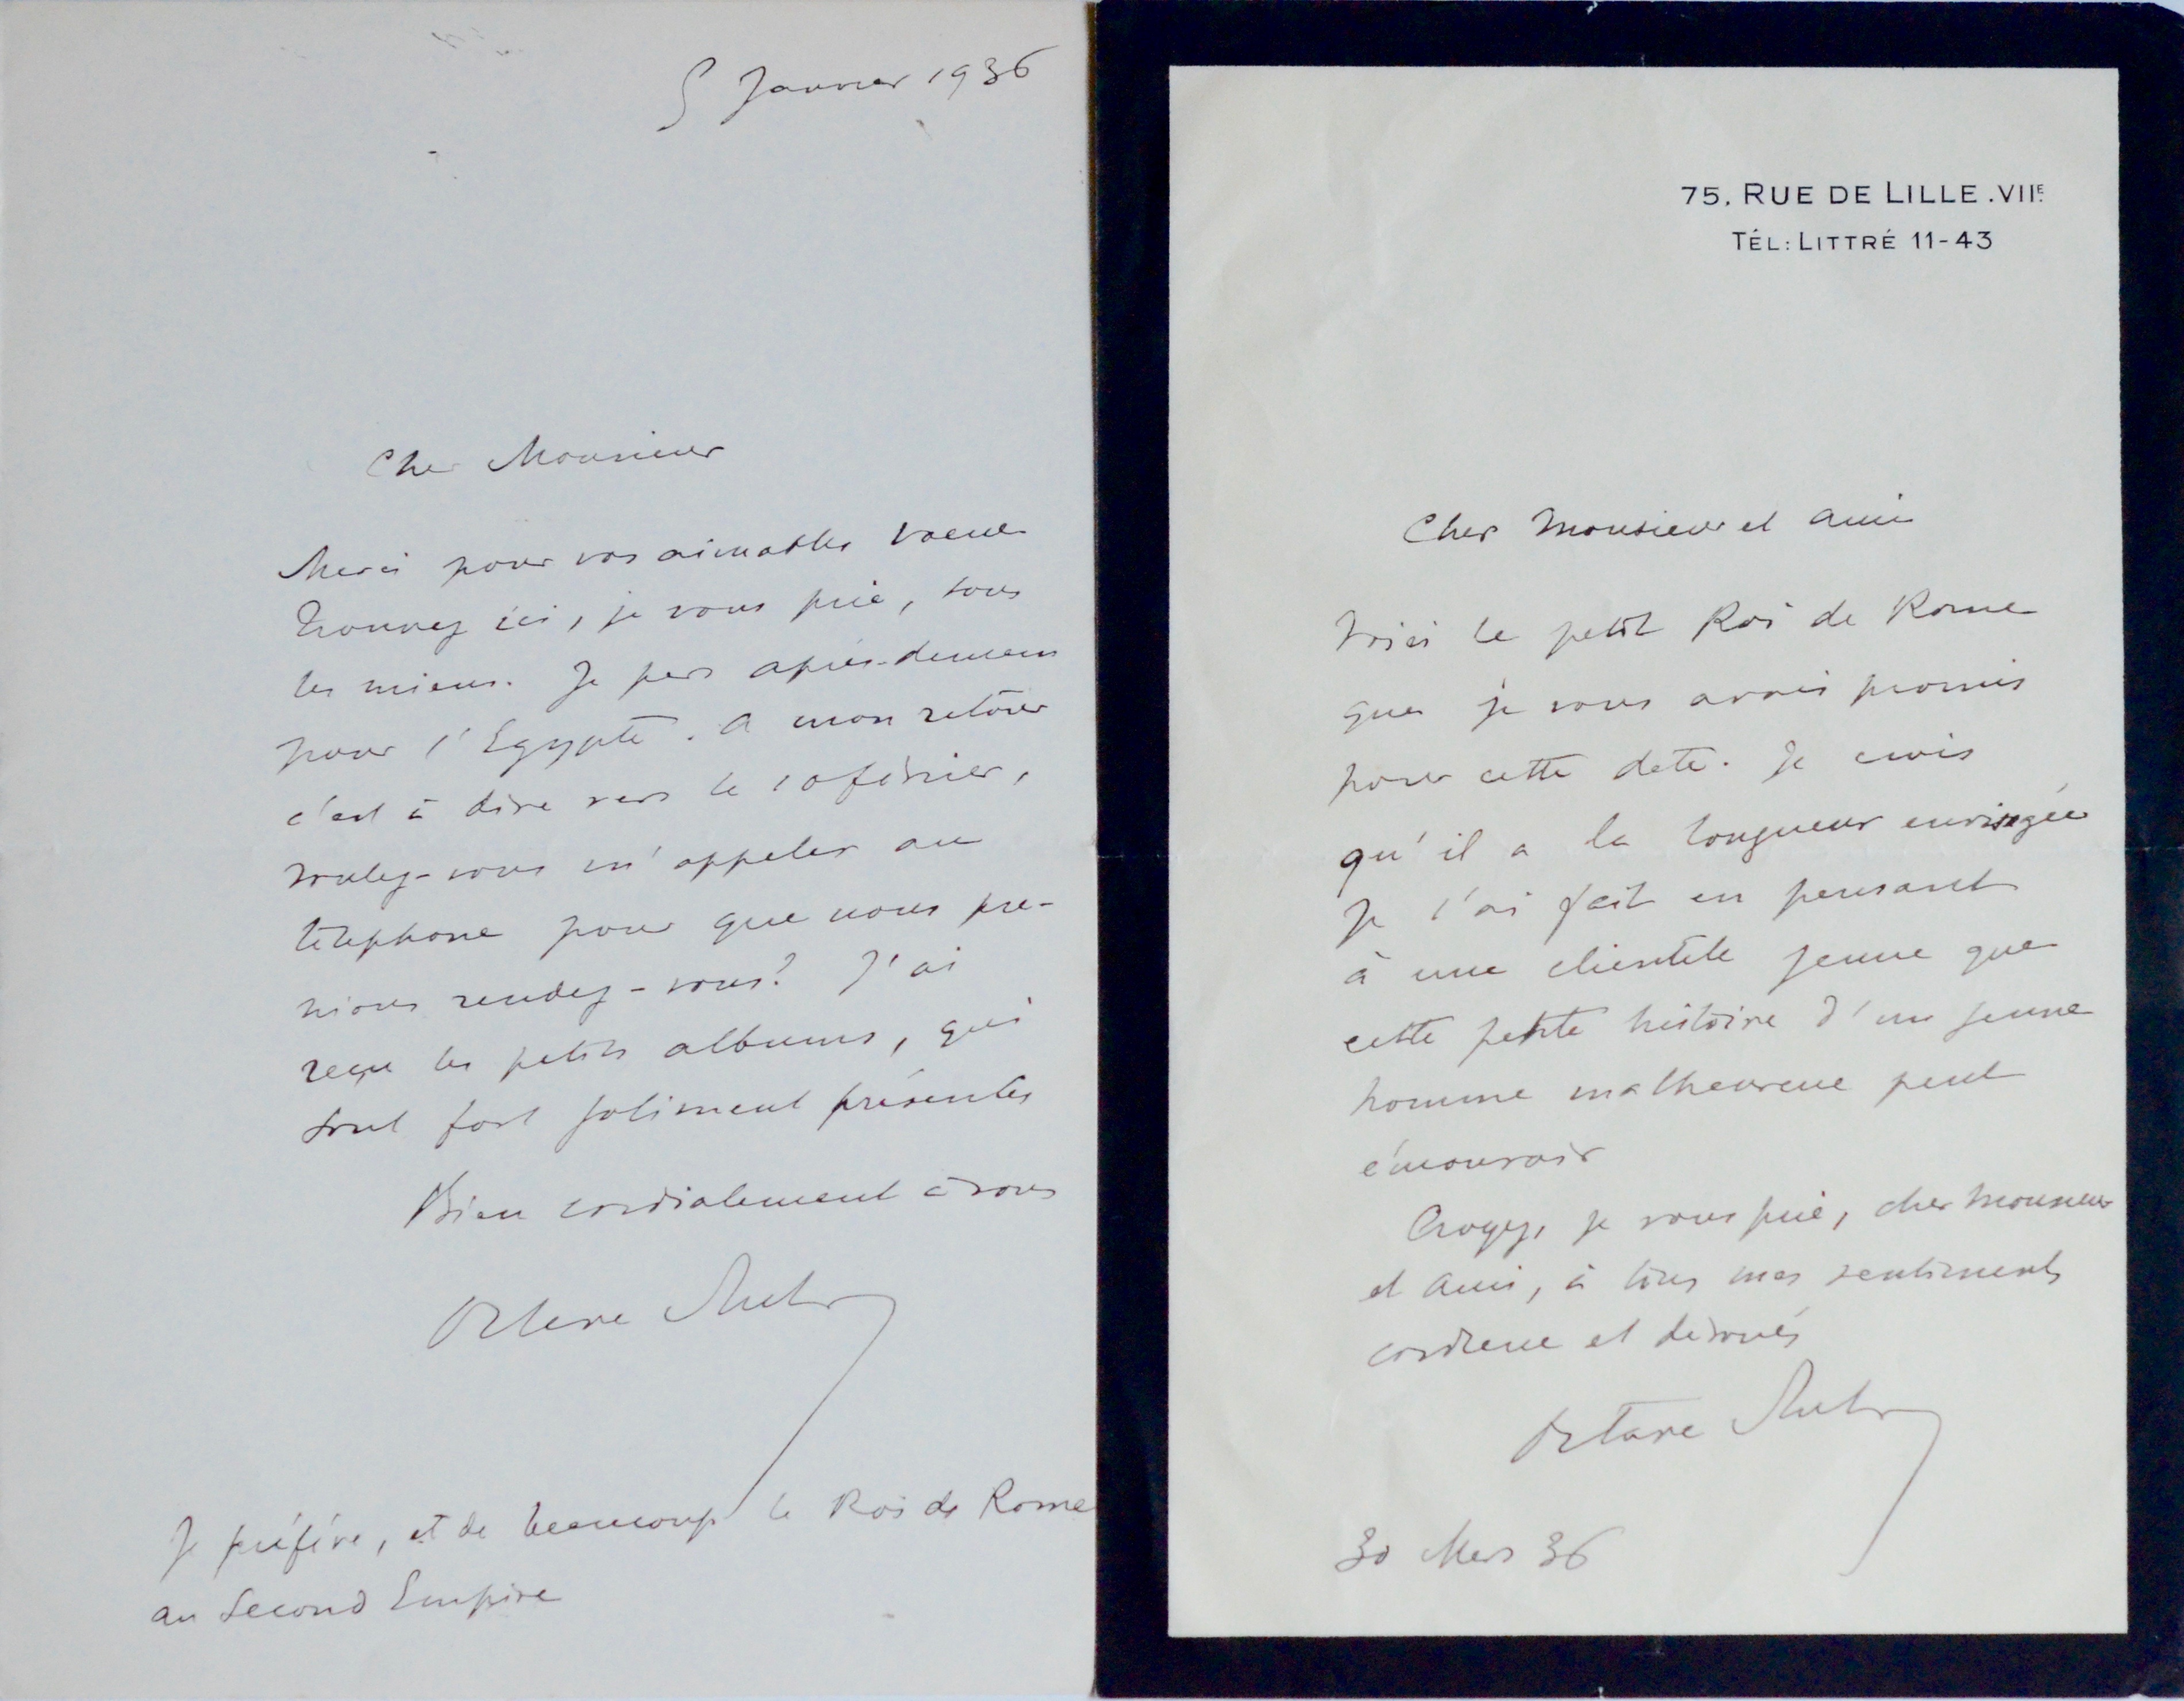 5 Janvier 1936
Cher Monsieur
Merci pour vos aimables voeux
Trouvez ici, je vous prie, tous
les miens. Je pars après-demain
pour l'Egypte. A mon retour
c'est à dire vers le 10 février,
voulez-vous m'appeler au
téléphone pour que nous pre-
nions rendez-vous? J'ai
reçu les petits albums, qui
sont fort joliment présentés
Bien cordialement à vous
Octave Aubry
Je préfère, et de beaucoup le Roi de Rome
au Second Empire
75. RUE DE LILLE . VIIE
TÉL: LITTRÉ 11-43
Cher Monsieur et ami
Voici le petit Roi de Rome
que je vous avais promis
pour cette date. Je crois
qu'il a la longueur envisagée
Je l'ai fait en pensant
à une clientèle jeune que
cette petite histoire d'un jeune
homme malheureux peut
émouvoir
Croyez, je vous prie, cher Monsieur
et ami, à tous mes sentiments
cordiaux et dévoués
Octave Aubry
30 Mars 36